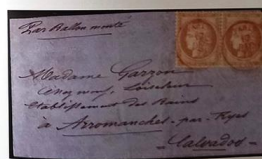 Par Ballon monté
Madame Garzon
Etablissement des Bains
à Arromanches par Ryes
Calvados